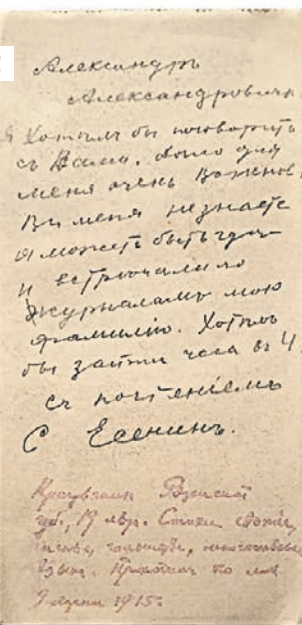 Александръ
Александровичъ
Я хотѣлъ бы поговорить
съ Вами. Дѣло для
меня очень важное.
Вы меня не знаете
а можетъ быть где
и встрѣчали по
журналамъ мою
фамилію. Хотѣлъ
бы зайти часа въ 4.
Съ почтеніемъ
С Есенинъ.
Крестьянин Рязанской
губ., 19 лет. Стихи свежие,
чистые, голосистые, многословный
язык. Приходил ко мне
9 марта 1915.